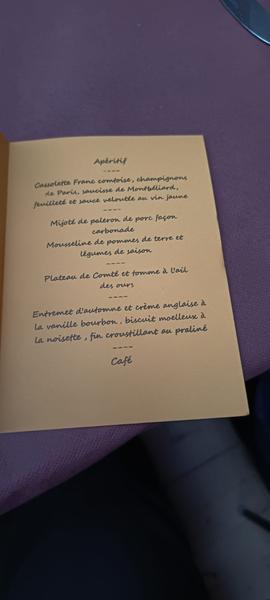 Apéritif
----
Cassolette Franc comtoise, champignons
de Paris, saucisse de Montbéliard,
feuilleté et sauce veloutée au vin jaune
----
Mijoté de paleron de porc façon
carbonade
Mousseline de pommes de terre et
légumes de saison
----
Plateau de Comté et tomme à l'ail
des ours
----
Entremet d'automne et crème anglaise à
la vanille bourbon , biscuit moelleux à
la noisette , fin croustillant au praliné
----
Café